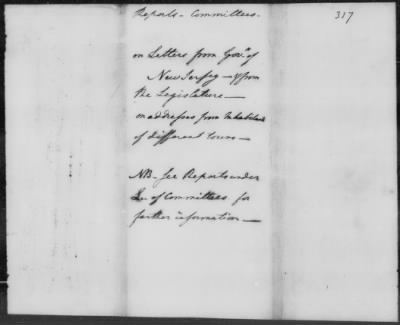 Reports - Committees -
317
on Letters from Gov.r of
New Jersey - & from
the Legislature -
on addresses from Inhabitants
of different Towns -
NB - See Reports under
of Committees for
farther information -